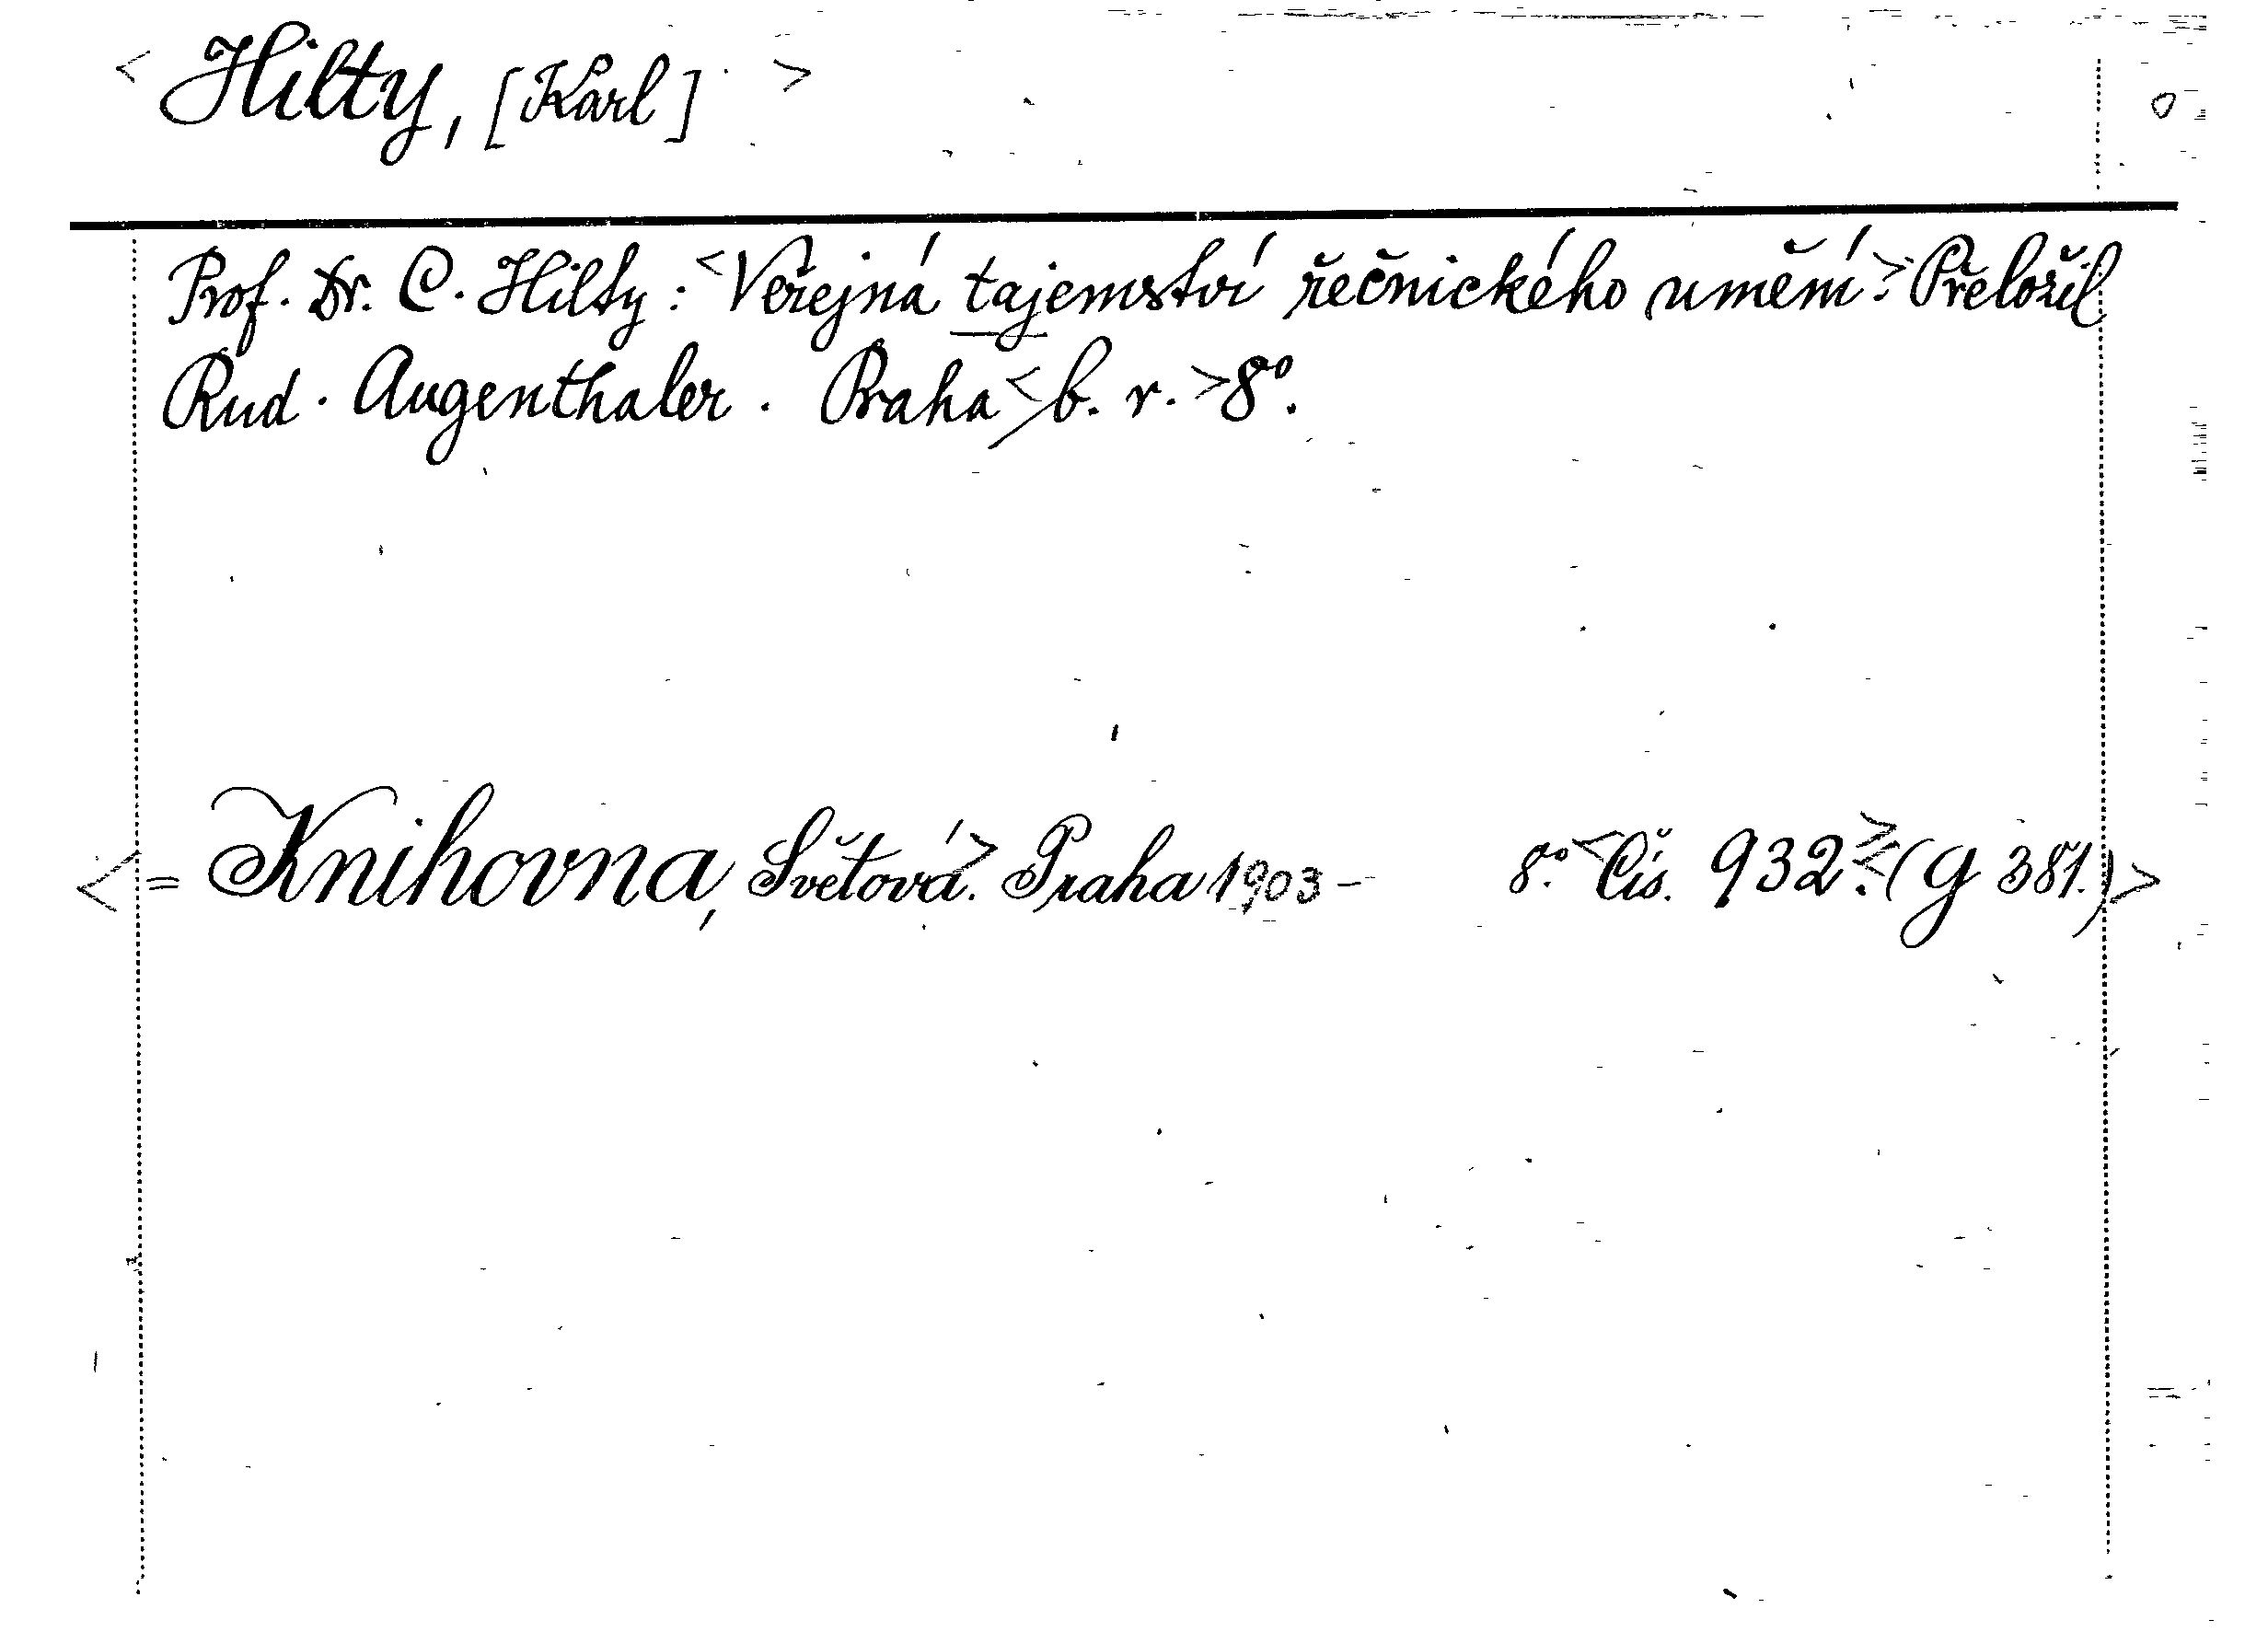 < Hilty, [Karl] >
Prof. Dr. C. Hilty: <Veřejná tajemství řečnického umění.> Přeložil
Rud. Augenthaler. Praha <b. r.> 8°.
<= Knihovna, Světová.> Praha 1903 - 8.° <Čís. 932.> <(G 381.)>